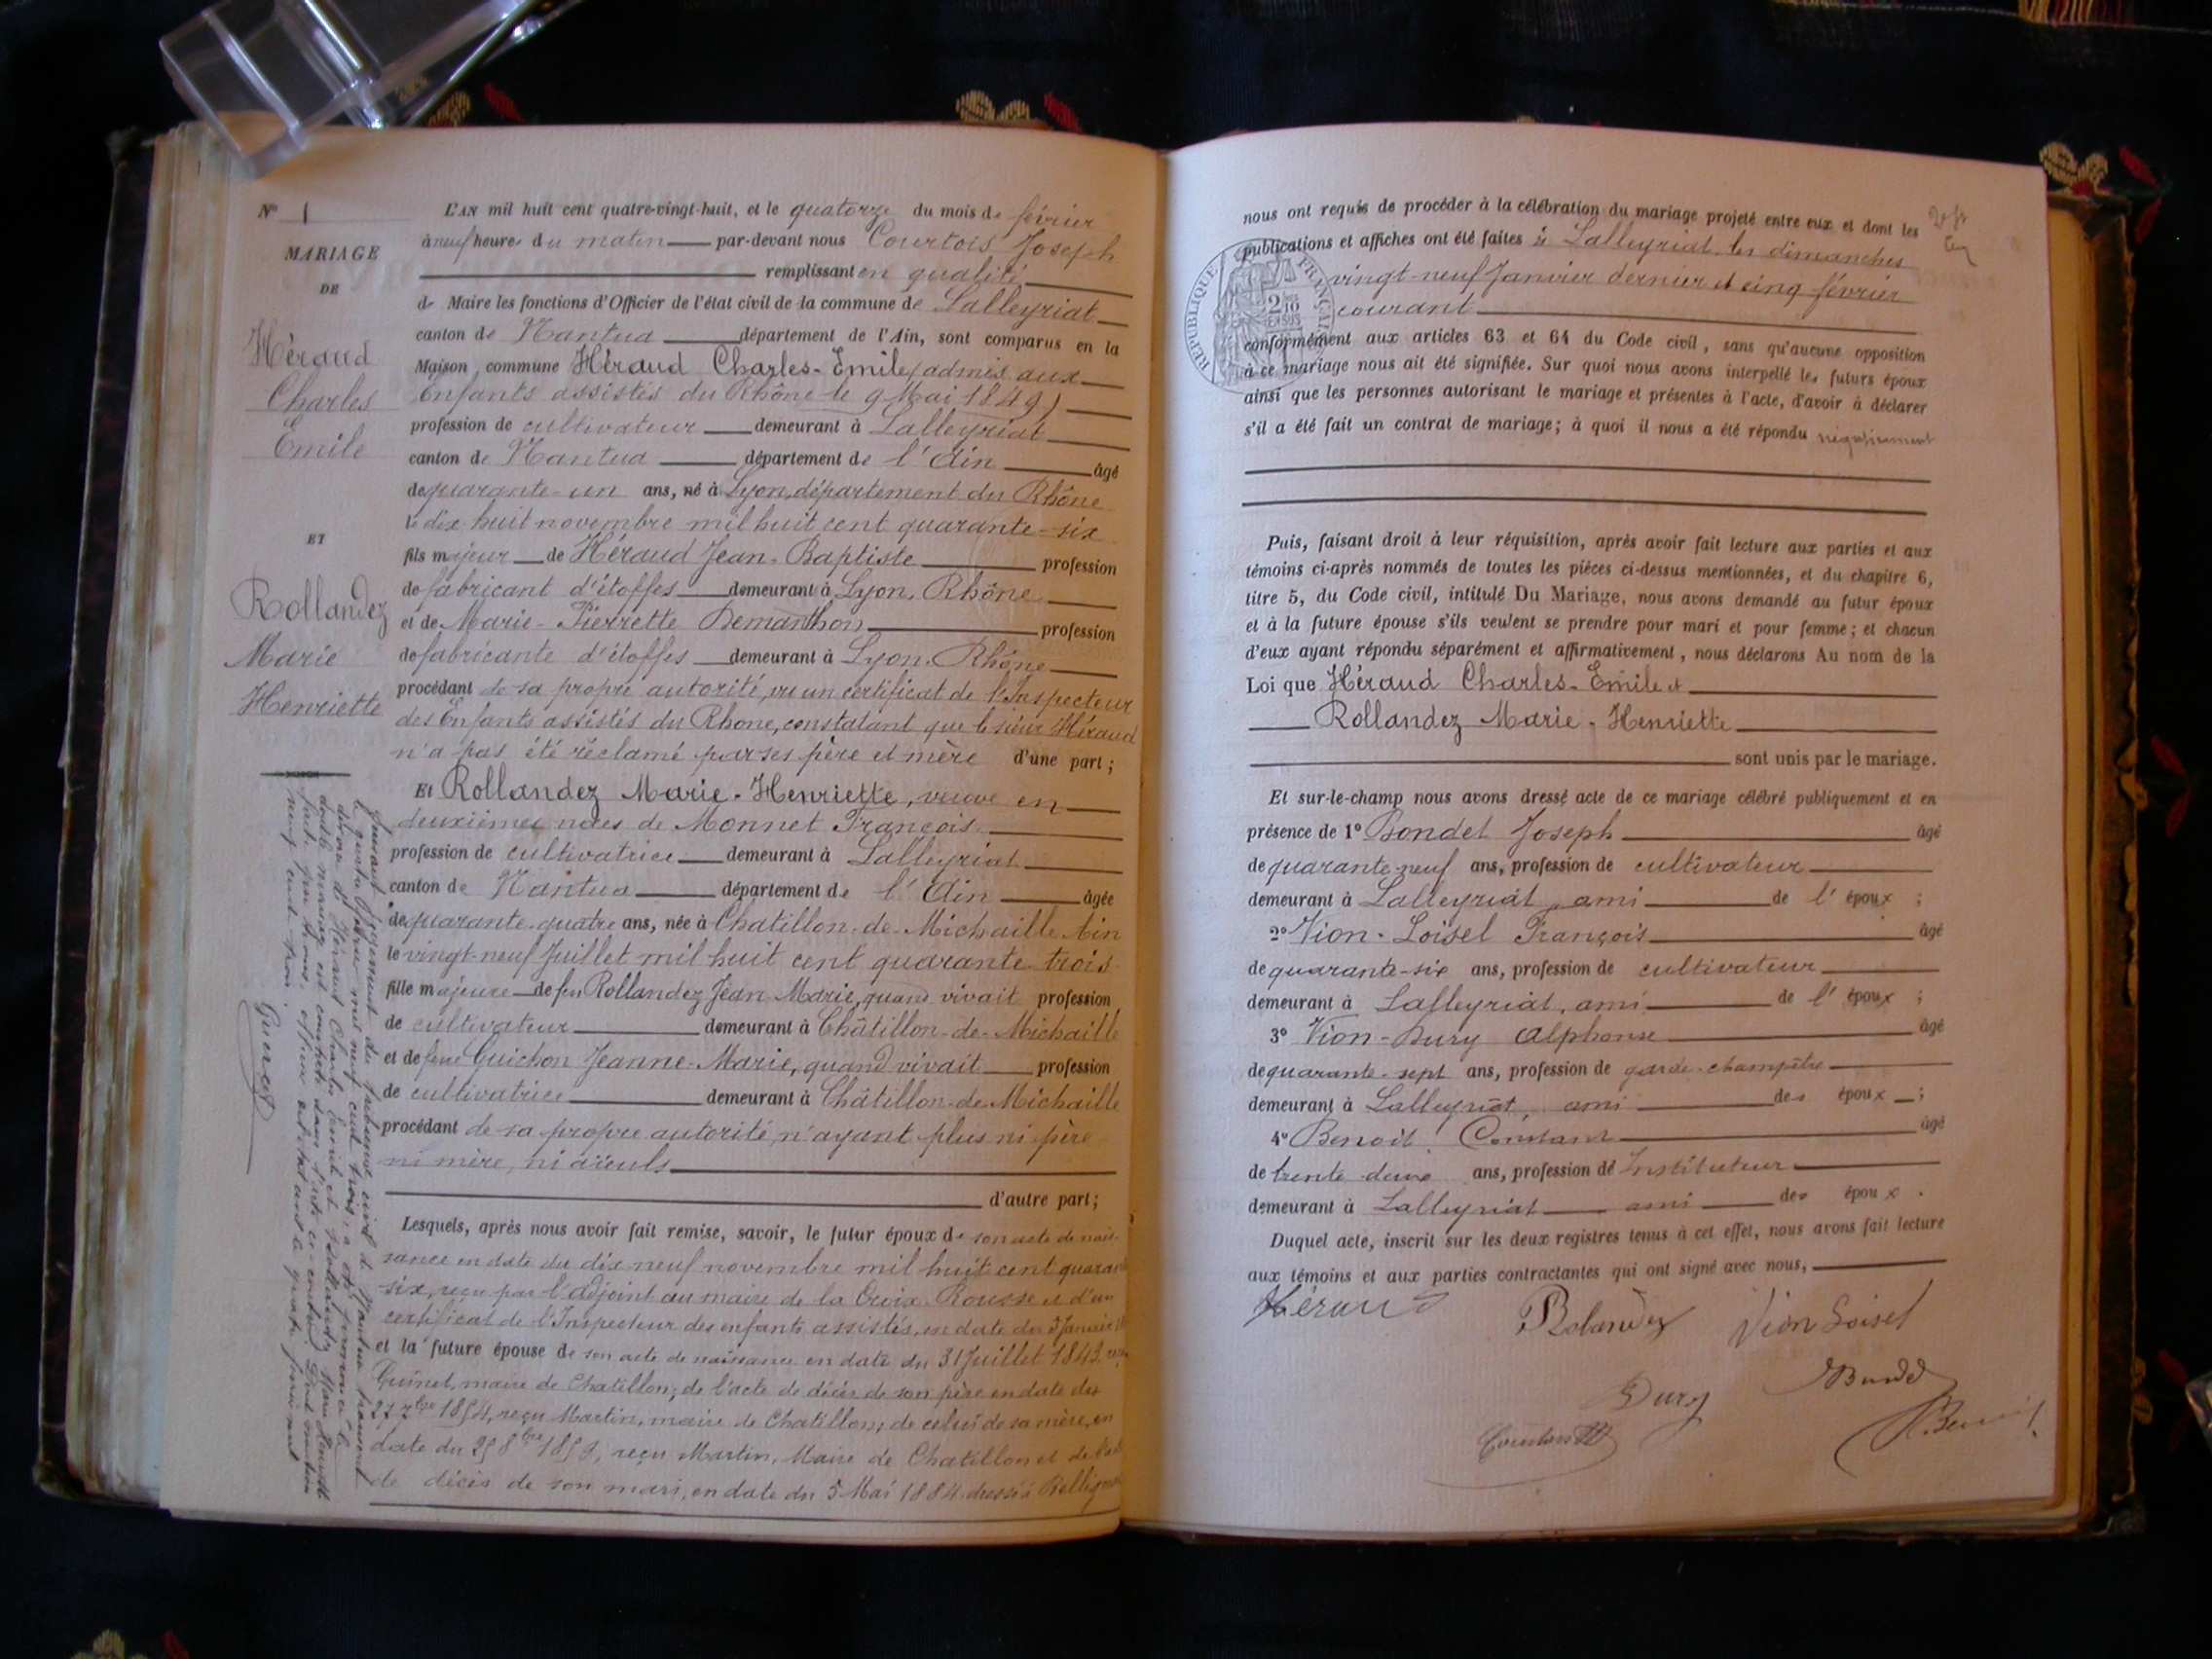 N° 1
MARIAGE
DE
Héraud
Charles
Emile
ET
Rollandez
Marie
Henriette
L'AN mil huit cent quatre-vingt-huit, et le quatorze du mois de février
à neuf heures du matin par-devant nous Courtois Joseph
remplissant en qualité
de Maire les fonctions d'Officier de l'état civil de la commune de Lalleyriat
canton de Nantua département de l'Ain, sont comparus en la
Maison commune Héraud Charles-Emile (admis aux
Enfants assistés du Rhône le 9 Mai 1849)
profession de cultivateur demeurant à Lalleyriat
canton de Nantua département de l'Ain âgé
de quarante-un ans, né à Lyon, département du Rhône
le dix-huit novembre mil huit cent quarante-six
fils majeur de Héraud Jean-Baptiste profession
de fabricant d'étoffes demeurant à Lyon, Rhône
et de Marie-Pierrette Demanthon profession
de fabricante d'étoffes demeurant à Lyon, Rhône
procédant de sa propre autorité, vu un certificat de l'Inspecteur
des Enfants assistés du Rhône, constatant que le sieur Héraud
n'a pas été réclamé par ses père et mère d'une part ;
Et Rollandez Marie-Henriette, veuve en
deuxièmes noces de Monnet François
profession de cultivatrice demeurant à Lalleyriat
canton de Nantua département de l'Ain âgée
de quarante-quatre ans, née à Chatillon-de-Michaille Ain
le vingt-neuf Juillet mil huit cent quarante-trois
fille majeure de feu Rollandez Jean-Marie, quand vivait profession
de cultivateur demeurant à Châtillon-de-Michaille
et de feue Guichon Jeanne-Marie, quand vivait profession
de cultivatrice demeurant à Châtillon-de-Michaille
procédant de sa propre autorité, n'ayant plus ni père
ni mère, ni aïeuls
d'autre part ;
Lesquels, après nous avoir fait remise, savoir, le futur époux de son acte de nais-
sance en date du dix-neuf novembre mil huit cent quarante
six, reçu par l'adjoint au maire de la Croix-Rousse et d'un
certificat de l'Inspecteur des enfants assistés, en date du 3 Janvier
et la future épouse de son acte de naissance en date du 31 Juillet 1843
Guinet, maire de Chatillon, de l'acte de décès de son père en date du
27 7bre 1854, reçu Martin, maire de Chatillon, de celui de sa mère, en
date du 25 8bre 1859, reçu Martin, Maire de Chatillon et de l'acte
de décès de son mari, en date du 5 Mai 1884 dressé à
Suivant jugement du tribunal civil de Nantua prononcé
le quatre février mil neuf cent trois, a été prononcé le
divorce d'Héraud Charles Emile et Rollandez Marie Henriette
dont le mariage est constaté dans l'acte ci-contre. Dont mention
faite par nous, officier de l'état civil le quatre
neuf cent trois.
nous ont requis de procéder à la célébration du mariage projeté entre eux et dont les
publications et affiches ont été faites à Lalleyriat les dimanches
vingt-neuf Janvier dernier et cinq février
courant
REPUBLIQUE FRANÇAI
conformément aux articles 63 et 64 du Code civil, sans qu'aucune opposition
à ce mariage nous ait été signifiée. Sur quoi nous avons interpellé les futurs époux
ainsi que les personnes autorisant le mariage et présentes à l'acte, d'avoir à déclarer
s'il a été fait un contrat de mariage ; à quoi il nous a été répondu négativement
Puis, faisant droit à leur réquisition, après avoir fait lecture aux parties et aux
témoins ci-après nommés de toutes les pièces ci-dessus mentionnées, et du chapitre 6,
titre 5, du Code civil, intitulé Du Mariage, nous avons demandé au futur époux
et à la future épouse s'ils veulent se prendre pour mari et pour femme ; et chacun
d'eux ayant répondu séparément et affirmativement, nous déclarons Au nom de la
Loi que Héraud Charles-Emile et
Rollandez Marie-Henriette
sont unis par le mariage.
Et sur-le-champ nous avons dressé acte de ce mariage célébré publiquement et en
présence de 1° Bondet Joseph âgé
de quarante-neuf ans, profession de cultivateur
demeurant à Lalleyriat, ami de l'époux ;
2° Vion-Loisel François âgé
de quarante-six ans, profession de cultivateur
demeurant à Lalleyriat, ami de l'époux ;
3° Vion-Dury Alphonse âgé
de quarante-sept ans, profession de garde-champêtre
demeurant à Lalleyriat, ami des époux ;
4° Benoit Constant âgé
de trente-deux ans, profession de Instituteur
demeurant à Lalleyriat ami des époux.
Duquel acte, inscrit sur les deux registres tenus à cet effet, nous avons fait lecture
aux témoins et aux parties contractantes qui ont signé avec nous,
Héraud
Rolandez
Vion Loisel
Dury
Bondet
Courtois
Benoit